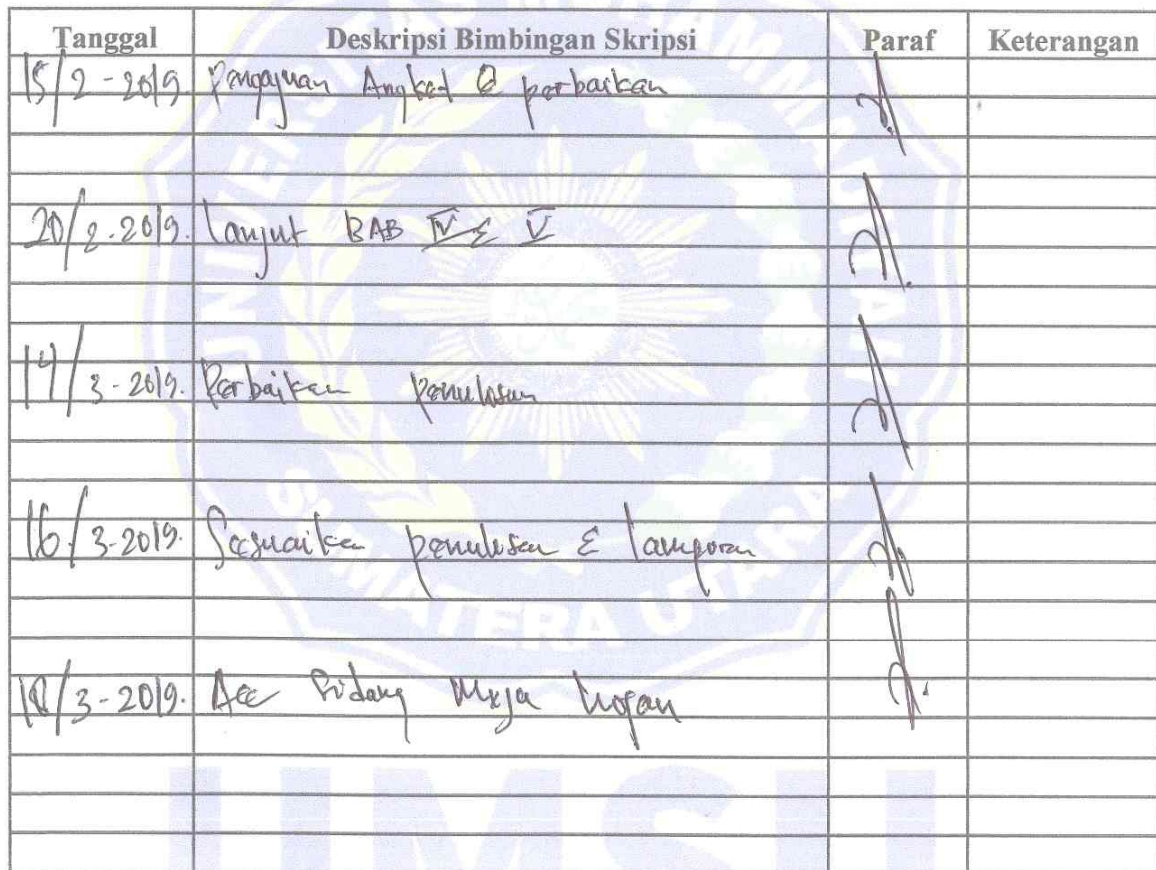 Tanggal Deskripsi Bimbingan Skripsi Paraf Keterangan
15/2-2019. Pengajuan Angket & perbaikan
20/2-2019. Lanjut BAB IV & V
14/3-2019. Perbaikan penulisan
16/3-2019. Sesuaikan penulisan & lampiran
18/3-2019. Acc Sidang Meja hijau
UNIVERSITAS MUHAMMADIYAH
SUMATERA UTARA
UMSU